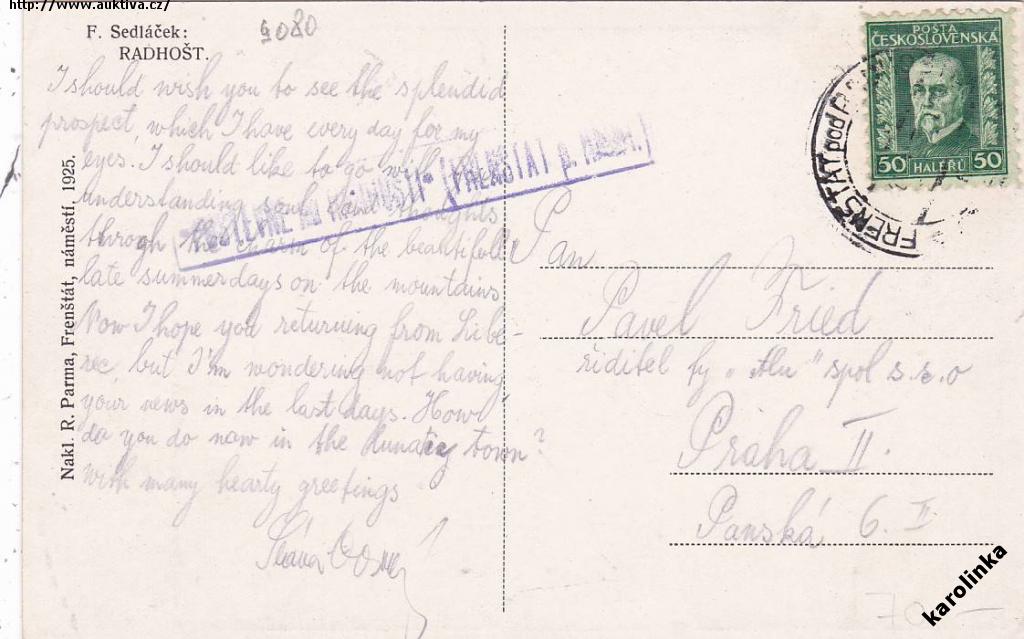 http://www.auktiva.cz/
9080
F. Sedláček:
RADHOŠT.
I should wish you to see the splendid
prospect, which I have every day for my
eyes. I should like to go with
understanding soul and thoughts
through the charm of the beautifuller
late summerdays on the mountains
Now I hope you returning from Libe-
rec, but I'm wondering not having
your news in the last days. How
do you do now in the town?
with many hearty greetings
Nakl. R. Parma, Frenštát, náměstí, 1925.
FRENŠTÁT p.
POŠTA
ČESKOSLOVENSKÁ
50 HALÉŘŮ 50
FRENŠTÁT pod
Pan
Pavel Fried
řiditel fy „Alu" spol s.r.o
Praha II.
Panská 6. II
karolinka